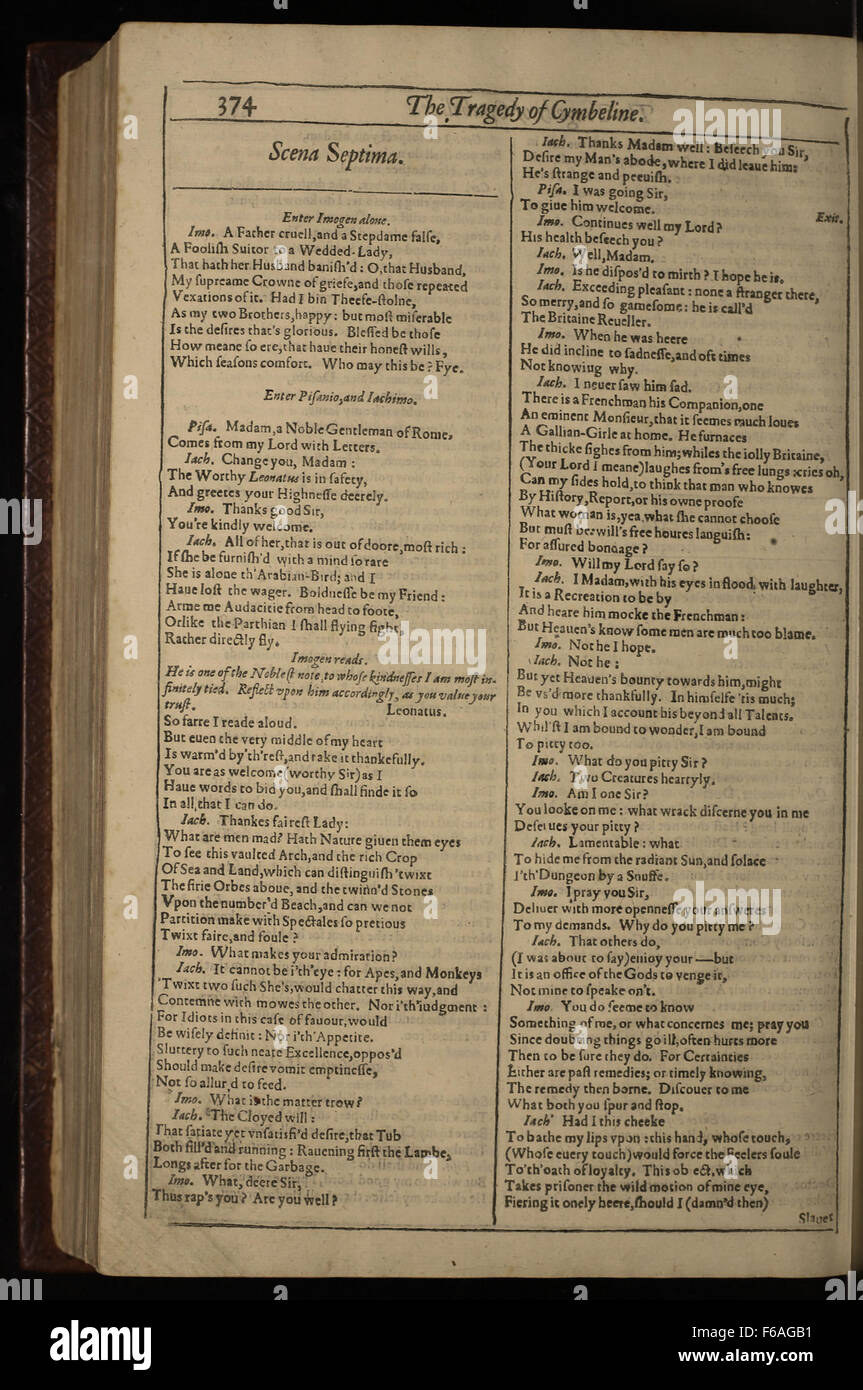 374
The Tragedy of Cymbeline.
Scena Septima.
Enter Imogen alone.
Imo. A Father cruell, and a Stepdame falſe,
A Fooliſh Suitor to a Wedded-Lady,
That hath her Husband baniſh'd: O, that Husband,
My ſupreame Crowne of griefe, and thoſe repeated
Vexations of it. Had I bin Theefe-ſtolne,
As my two Brothers, happy: but moſt miſerable
Is the deſires that's glorious. Bleſſed be thoſe
How meane ſo ere, that haue their honeſt wills,
Which ſeaſons comfort. Who may this be? Fye.
Enter Piſanio, and Iachimo.
Piſa. Madam, a Noble Gentleman of Rome,
Comes from my Lord with Letters.
Iach. Change you, Madam:
The Worthy Leonatus is in ſafety,
And greetes your Highneſſe deerely.
Imo. Thanks good Sir,
You're kindly welcome.
Iach. All of her, that is out of doore, moſt rich:
If ſhe be furniſh'd with a mind ſo rare
She is alone th'Arabian-Bird; and I
Haue loſt the wager. Boldneſſe be my Friend:
Arme me Audacitie from head to foote,
Orlike the Parthian I ſhall flying fight,
Rather directly fly.
Imogen reads.
He is one of the Nobleſt note, to whoſe kindneſſes I am moſt in-
finitely tied. Reflect vpon him accordingly, as you value your
truſt. Leonatus.
So farre I reade aloud.
But euen the very middle of my heart
Is warm'd by'th'reſt, and take it thankefully.
You are as welcome (worthy Sir) as I
Haue words to bid you, and ſhall finde it ſo
In all, that I can do.
Iach. Thankes faireſt Lady:
What are men mad? Hath Nature giuen them eyes
To ſee this vaulted Arch, and the rich Crop
Of Sea and Land, which can diſtinguiſh 'twixt
The firie Orbes aboue, and the twinn'd Stones
Vpon the number'd Beach, and can we not
Partition make with Spectales ſo pretious
Twixt faire, and foule?
Imo. What makes your admiration?
Iach. It cannot be i'th'eye: for Apes, and Monkeys
'Twixt two ſuch She's, would chatter this way, and
Contemne with mowes the other. Nor i'th'iudgment:
For Idiots in this caſe of fauour, would
Be wiſely definit: Nor i'th'Appetite.
Sluttery to ſuch neate Excellence, oppos'd
Should make deſire vomit emptineſſe,
Not ſo allur'd to feed.
Imo. What is the matter trow?
Iach. The Cloyed will:
That ſatiate yet vnſatisfi'd deſire, that Tub
Both fill'd and running: Rauening firſt the Lambe,
Longs after for the Garbage.
Imo. What, deere Sir,
Thus rap's you? Are you well?
Iach. Thanks Madam well: Beſeech you Sir,
Deſire my Man's abode, where I did leaue him:
He's ſtrange and peeuiſh.
Piſa. I was going Sir,
To giue him welcome. Exit.
Imo. Continues well my Lord?
His health beſeech you?
Iach. Well, Madam.
Imo. Is he diſpos'd to mirth? I hope he is.
Iach. Exceeding pleaſant: none a ſtranger there,
So merry, and ſo gameſome: he is call'd
The Britaine Reueller.
Imo. When he was heere
He did incline to ſadneſſe, and oft times
Not knowing why.
Iach. I neuer ſaw him ſad.
There is a Frenchman his Companion, one
An eminent Monſieur, that it ſeemes much loues
A Gallian-Girle at home. He furnaces
The thicke ſighes from him; whiles the iolly Britaine,
(Your Lord I meane) laughes from's free lungs: cries oh,
Can my ſides hold, to think that man who knowes
By Hiſtory, Report, or his owne proofe
What woman is, yea what ſhe cannot chooſe
But muſt be: will's free houres languiſh:
For aſſured bondage?
Imo. Will my Lord ſay ſo?
Iach. I Madam, with his eyes in flood with laughter,
It is a Recreation to be by
And heare him mocke the Frenchman:
But Heauen's know ſome men are much too blame.
Imo. Not he I hope.
Iach. Not he:
But yet Heauen's bounty towards him, might
Be vs'd more thankfully. In himſelfe 'tis much;
In you which I account his beyond all Talents.
Whil'ſt I am bound to wonder, I am bound
To pitty too.
Imo. What do you pitty Sir?
Iach. Two Creatures heartyly.
Imo. Am I one Sir?
You looke on me: what wrack diſcerne you in me
Deſerues your pitty?
Iach. Lamentable: what
To hide me from the radiant Sun, and ſolace
I'th'Dungeon by a Snuffe.
Imo. I pray you Sir,
Deliuer with more openneſſe your anſweres
To my demands. Why do you pitty me?
Iach. That others do,
(I was about to ſay) enioy your —— but
It is an office of the Gods to venge it,
Not mine to ſpeake on't.
Imo. You do ſeeme to know
Something of me, or what concernes me; pray you
Since doubting things go ill, often hurts more
Then to be ſure they do. For Certainties
Either are paſt remedies; or timely knowing,
The remedy then borne. Diſcouer to me
What both you ſpur and ſtop.
Iach' Had I this cheeke
To bathe my lips vpon: this hand, whoſe touch,
(Whoſe euery touch) would force the Feelers ſoule
To'th'oath of loyalty. This ob ect, which
Takes priſoner the wild motion of mine eye,
Fiering it onely heere, ſhould I (damn'd then)
Slauer
alamy
Image ID: F6AGB1
www.alamy.com